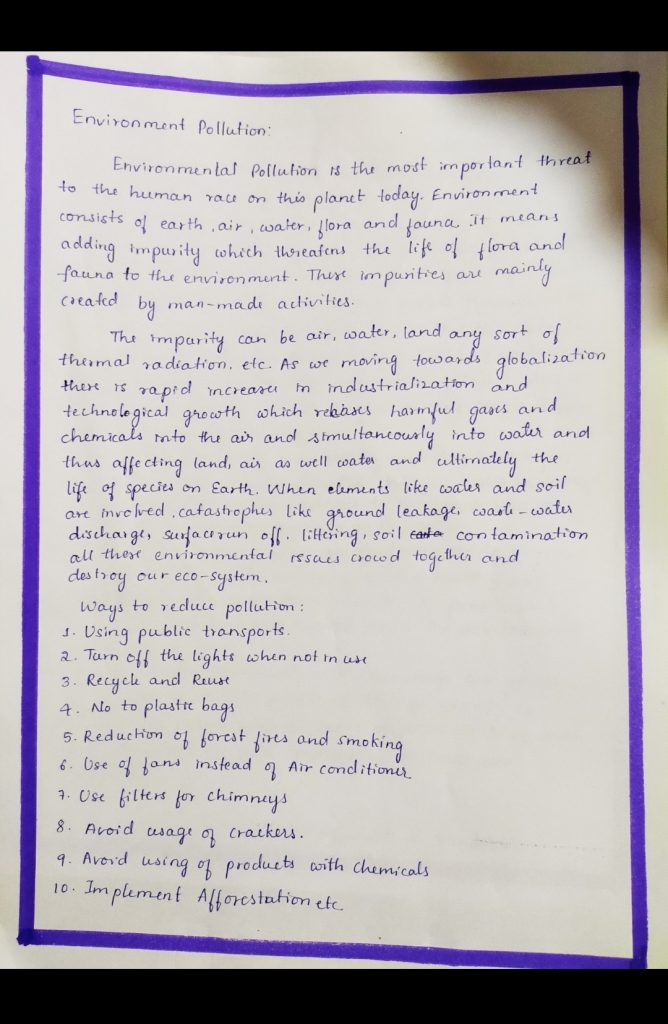 Environment Pollution:
Environmental Pollution is the most important threat
to the human race on this planet today. Environment
consists of earth, air, water, flora and fauna. It means
adding impurity which threatens the life of flora and
fauna to the environment. These impurities are mainly
created by man-made activities.
The impurity can be air, water, land any sort of
thermal radiation, etc. As we moving towards globalization
there is rapid increase in industrialization and
technological growth which releases harmful gases and
chemicals into the air and simultaneously into water and
thus affecting land, air as well water and ultimately the
life of species on Earth. When elements like water and soil
are involved, catastrophes like ground leakage, waste-water
discharge, surface run off, littering, soil contamination
all these environmental issues crowd together and
destroy our eco-system.
Ways to reduce pollution:
1. Using public transports.
2. Turn off the lights when not in use
3. Recycle and Reuse
4. No to plastic bags
5. Reduction of forest fires and smoking
6. Use of fans instead of Air conditioner
7. Use filters for chimneys
8. Avoid usage of crackers.
9. Avoid using of products with chemicals
10. Implement Afforestation etc.